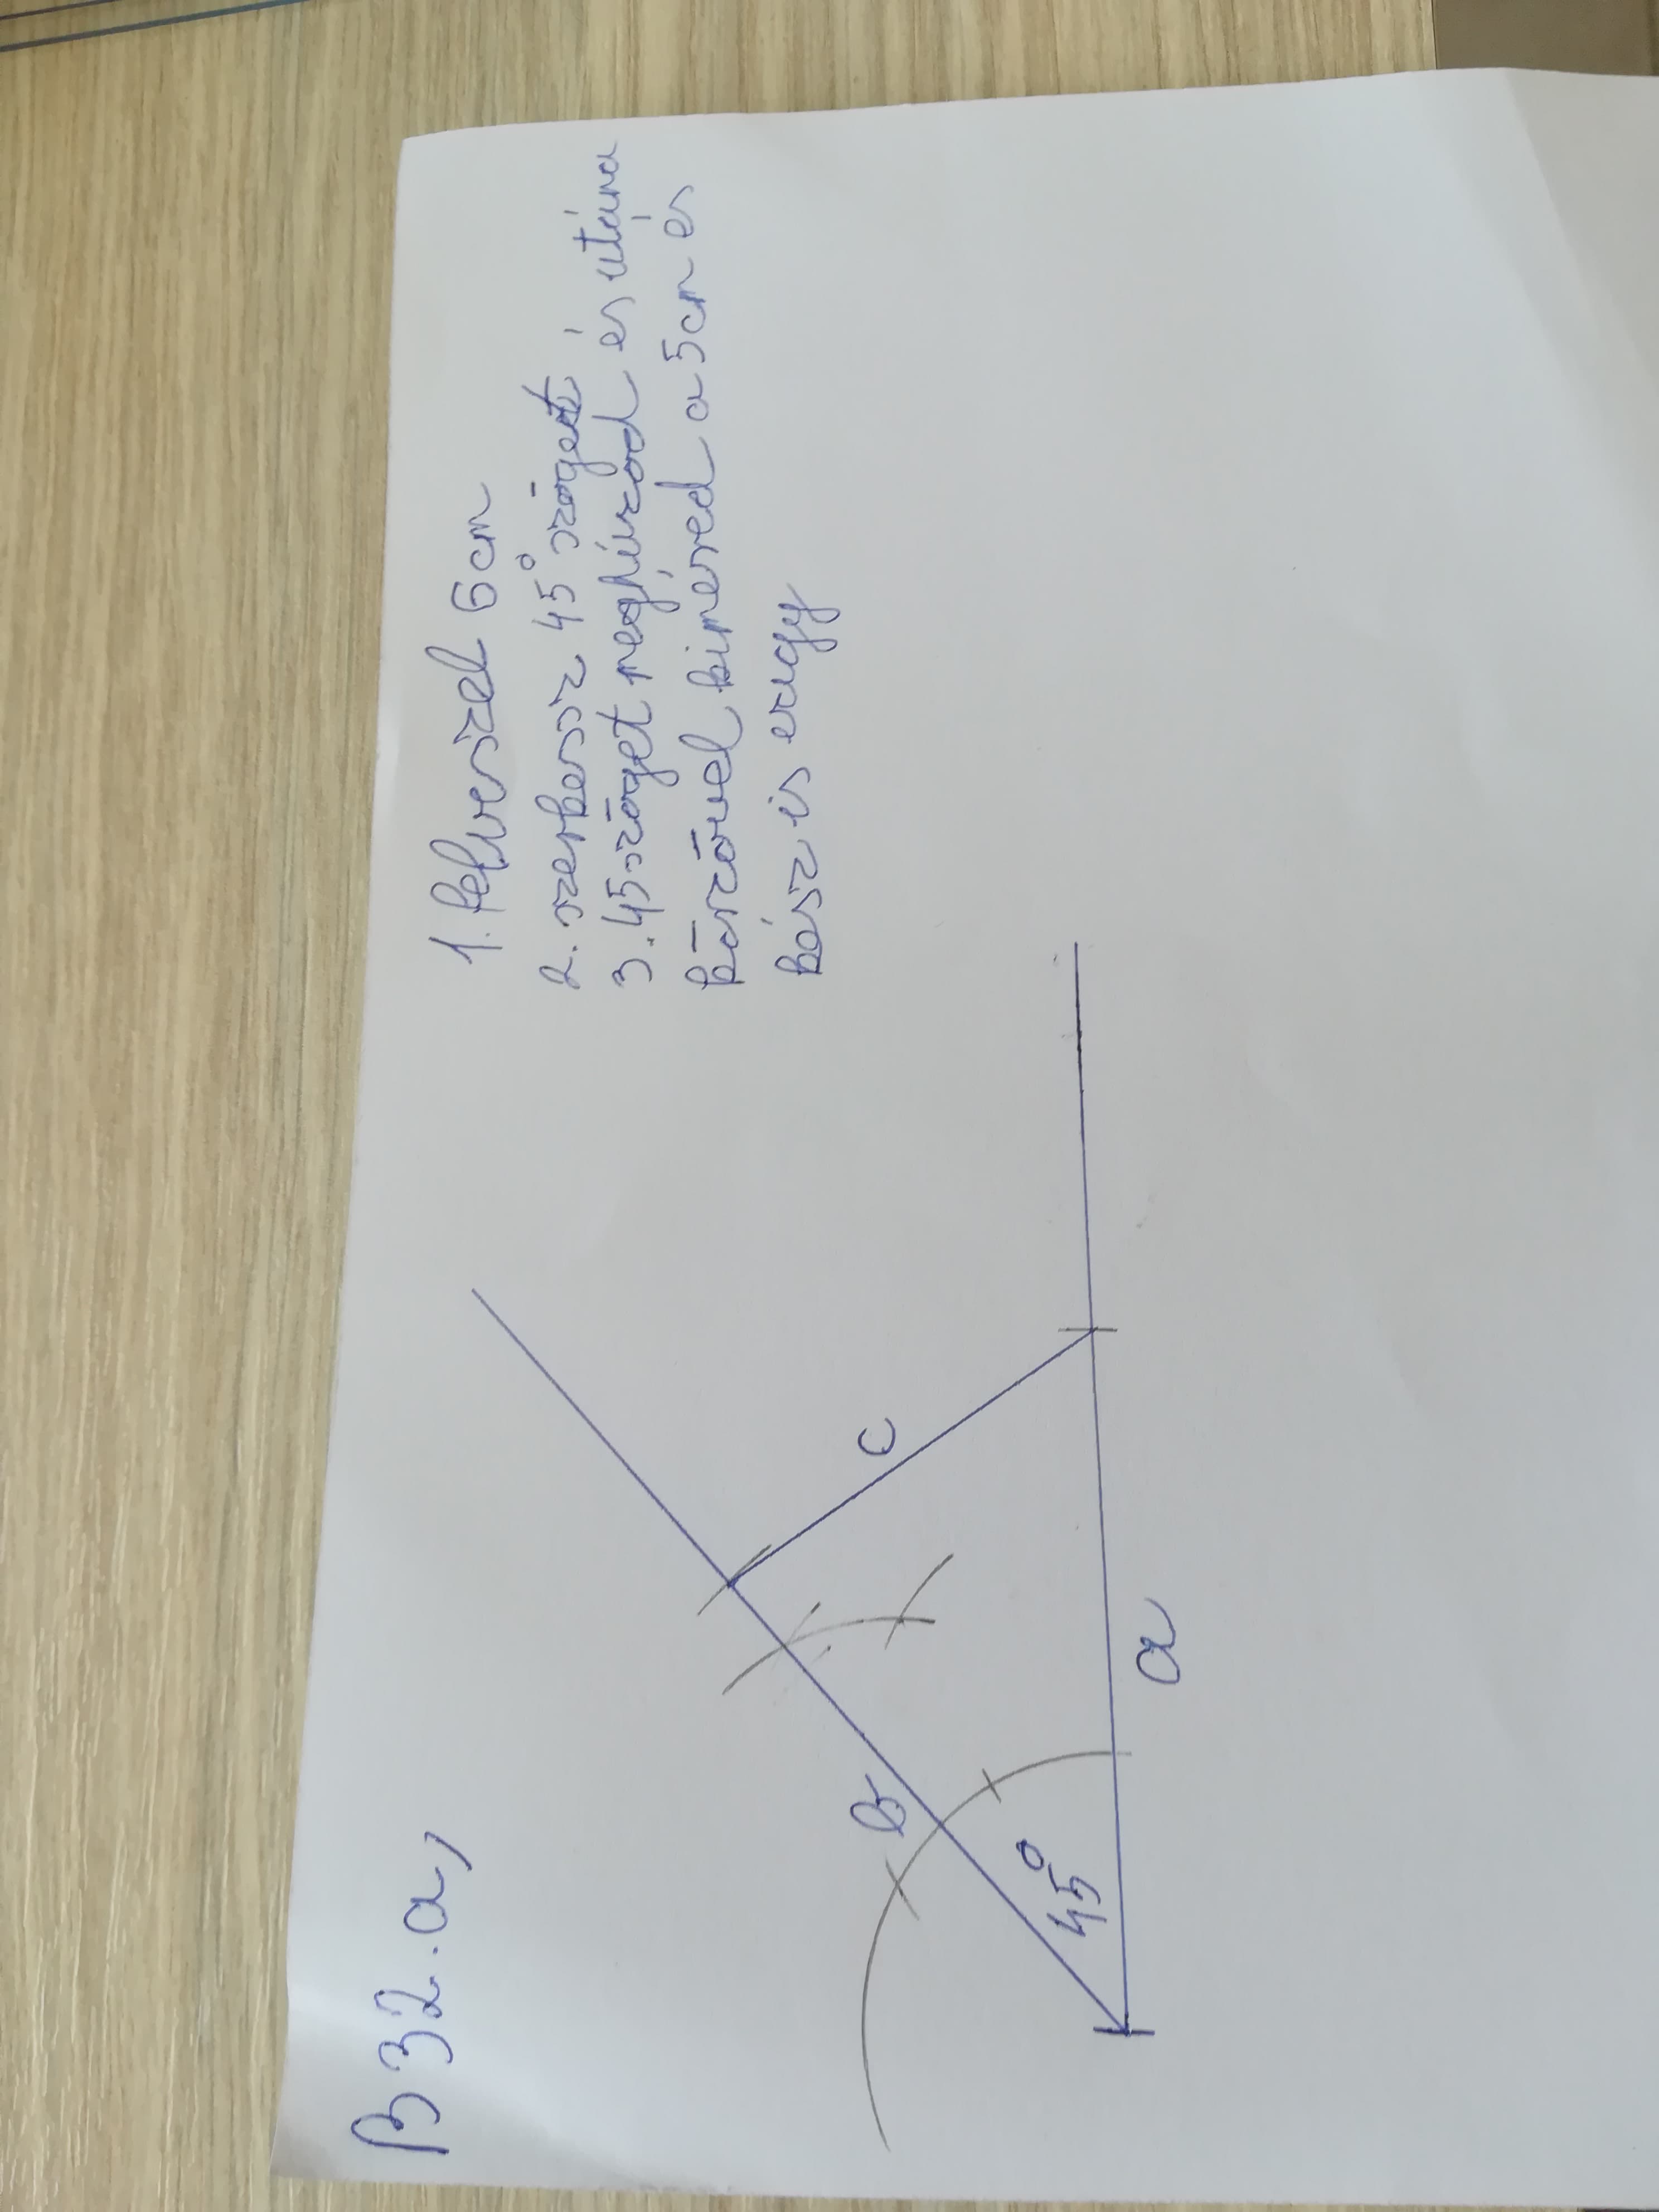 B32.a,
1. felveszel 6cm
2. szerkessz 45° szöget
3. 45 szöget meghúzod és utána
körzővel kiméred a 5cm és
kész is vagy
b
c
45°
a